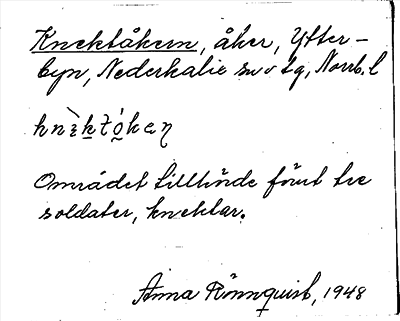 Knektåkern, åker, Ytter-
byn, Nederkalix sn o tg, Norrb. l
Området tillhörde förut tre
soldater, knektar.
Anna Rönnquist, 1948